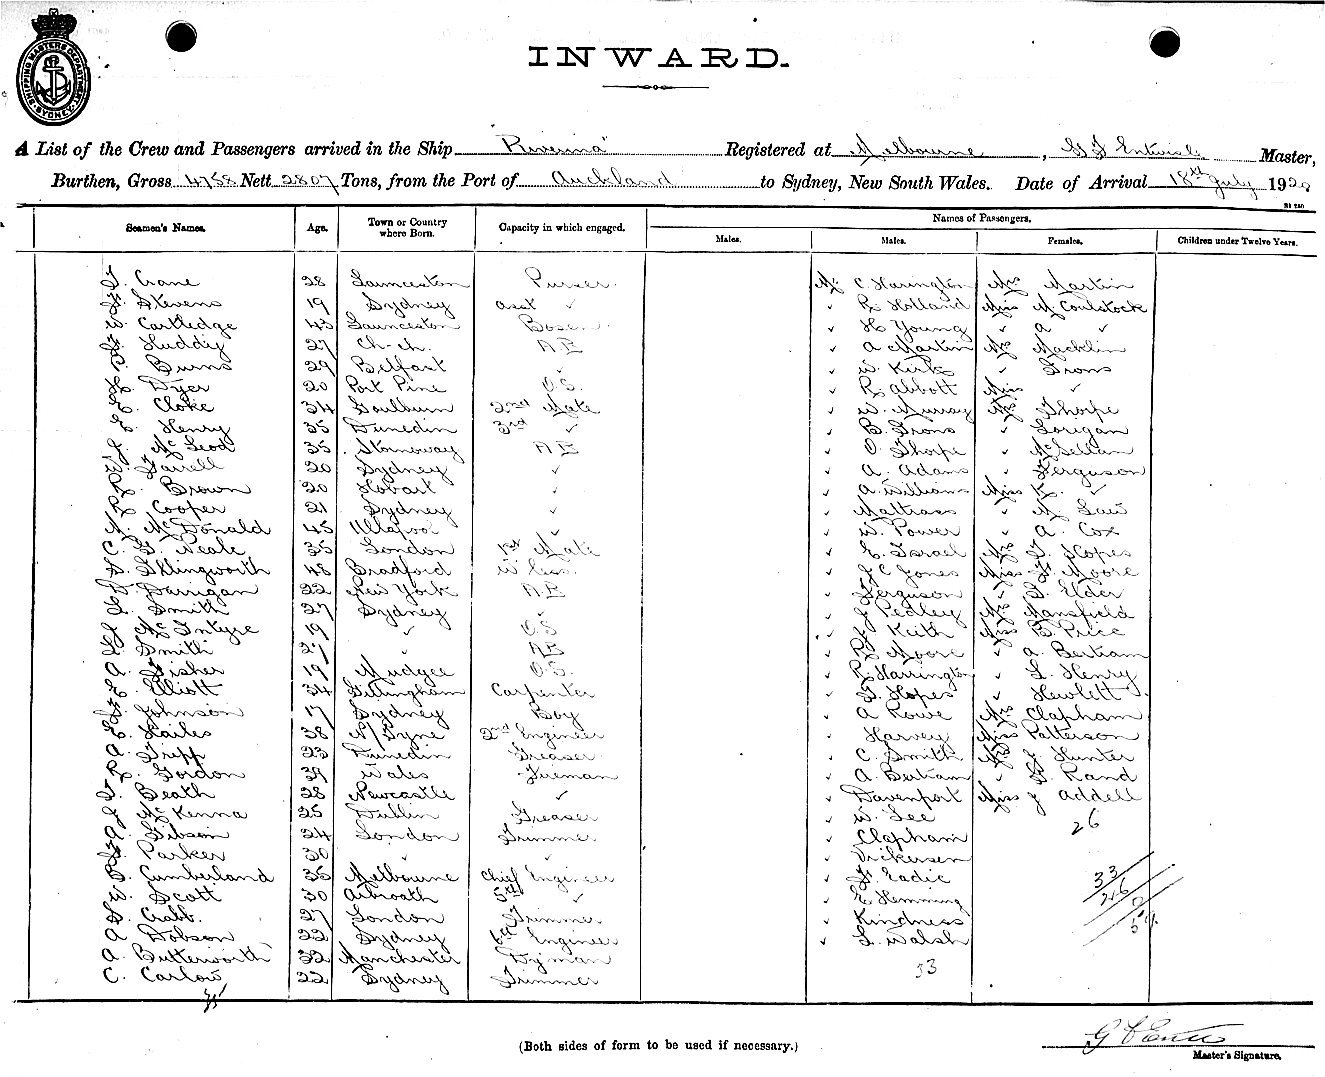 SHIPPING MASTERS DEPARTMENT SYDNEY
INWARD.
A List of the Crew and Passengers arrived in the Ship Riverina Registered at Melbourne, Master,
Burthen, Gross 4758 Nett 2807 Tons, from the Port of Auckland to Sydney, New South Wales. Date of Arrival 18th July 1920
Names of Passengers.
Seamen's Names. Age. Town or Country where Born. Capacity in which engaged. Males. Males. Females. Children under Twelve Years.
Crane 28 Launceston Purser Mr C. Harington Mrs Martin
Stevens 19 Sydney asst ✓ ✓ R Holland Miss M Coulstock
W. Cartledge 43 Launceston Bosen ✓ H Young ✓ A ✓
Huddy 27 Ch-ch. AB ✓ A Martin Mr Macklin
Burns 29 Belfast ✓ ✓ W. Kirk Irons
Dyer 20 Port Pirie O.S. ✓ R Abbott Miss ✓
Cloke 34 Goulburn 2nd Mate ✓ W. Murray Thorpe
Henry 35 Dunedin 3rd ✓ ✓ B. Irons Lorigan
J McLeod 35 Stornoway AB ✓ O. Thorpe McLellan
Farrell 20 Sydney ✓ ✓ A. Adams Ferguson
Brown 20 Hobart ✓ ✓ A. Williams Miss ✓
Cooper 21 Sydney ✓ ✓ Mattrass ✓ M Law
McDonald 45 Ullapool ✓ ✓ W. Power ✓ A. Cox
C. G. Neale 35 London 1st Mate ✓ E. Israel Hopes
Illingworth 48 Bradford ✓ J C Jones Miss Moore
Darrigan 22 New York AB ✓ Ferguson Elder
Smith 27 Sydney ✓ ✓ J Pedley Mansfield
McIntyre 19 ✓ O.S ✓ Keith Miss B. Price
Smith 27 ✓ AB ✓ R Moore ✓ A. Bertram
A. Fisher 19 Mudgee O.S. ✓ R Harrington ✓ L. Henry
Elliott 34 Gillingham Carpenter ✓ Hopes ✓ Hewlett
Johnson 17 Sydney Boy ✓ A Rowe Mrs Clapham
Hailes 38 N/Tyne 2nd Engineer ✓ Harvey Miss Patterson
A. Tripp 23 Dunedin Greaser ✓ C. Smith J Hunter
Gordon 39 Wales Fireman ✓ A Bertram Rand
Beath 28 Newcastle ✓ ✓ Davenport Miss J Addell
J McKenna 25 Dublin Greaser ✓ W. Lee 26
A. Gibson 24 London Trimmer ✓ Clapham
Parker 30 ✓ ✓ ✓ Dickersen
Cumberland 36 Melbourne Chief Engineer ✓ Eadie 33
W. Scott 30 Arbroath 5th ✓ ✓ E Hemming 26
Crabb. 27 London Trimmer ✓ Kindness 59
A Dobson 22 Sydney 6th Engineer ✓ L. Walsh
A. Butterworth 32 Manchester 33
C. Carlow 22 Sydney Trimmer
(Both sides of form to be used if necessary.)
Master's Signature.